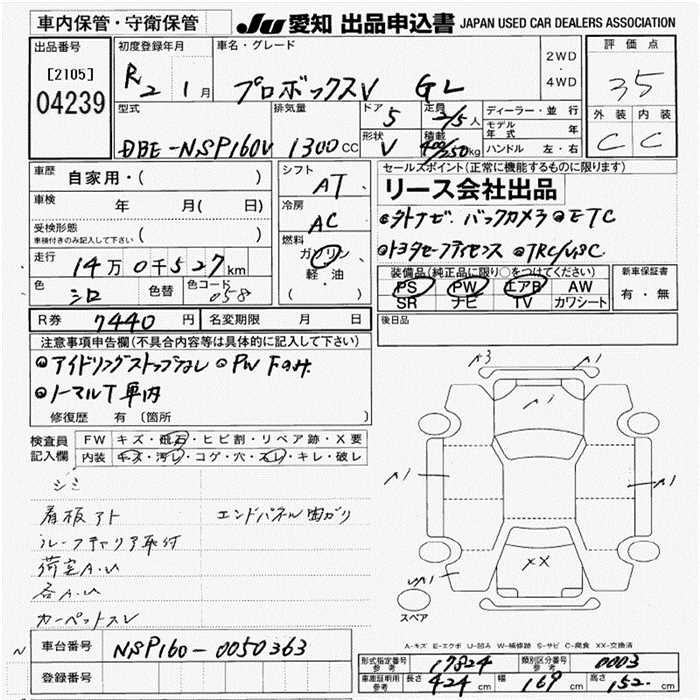 車内保管・守衛保管
JU 愛知 出品申込書 JAPAN USED CAR DEALERS ASSOCIATION
出品番号
[2105]
04239
初度登録年月
R2 1月
車名・グレード
プロボックスV GL
2WD
・
4WD
評価点
35
外装 内装
C C
型式
DBE-NSP160V
排気量
1300cc
ドア
5
定員
2/5人
形状
V
積載
400/250kg
ディーラー・並行
モデル年式 年
ハンドル 左・右
車歴 自家用・( )
車検 年 月( 日)
受検形態
車検付きのみ記入して下さい ( )
走行 14万0千527km
色 シロ 色替 色コード 058
シフト
AT
冷房
AC
燃料
ガソリン
軽・油
( )
セールスポイント(正常に機能するものに限ります)
リース会社出品
●外ナビ バックカメラ ●ETC
●トヨタセーフティセンス ●TRC/VSC
装備品(純正品に限り○をつけてください)
PS PW エアB AW
SR ナビ TV カワシート
新車保証書
有・無
R券 7440円 名変期限 月 日
後日品
注意事項申告欄(不具合内容等は具体的に記入して下さい)
●アイドリングストップなし ●PW Fのみ
●ノーマルT 車内
修復歴 有 〔箇所 〕
検査員記入欄
FW キズ・飛石・ヒビ割・リペア跡・X要
内装 キズ・汚レ・コゲ・穴・スレ・キレ・破レ
シミ
看板アト エンドパネル曲がり
ルーフキャリア取付
荷室A.U
各A.U
カーペットスレ
A3 A1
A1
A1 A1
XX
UA1
スペア
A-キズ E-エクボ U-凹み W-補修跡 S-サビ C-腐食 XX-交換済
車台番号 NSP160-0050363
登録番号
形式指定番号参考 17824 類別区分番号参考 0003
車庫証明用参考 長さ 424cm 幅 169cm 高さ 152cm